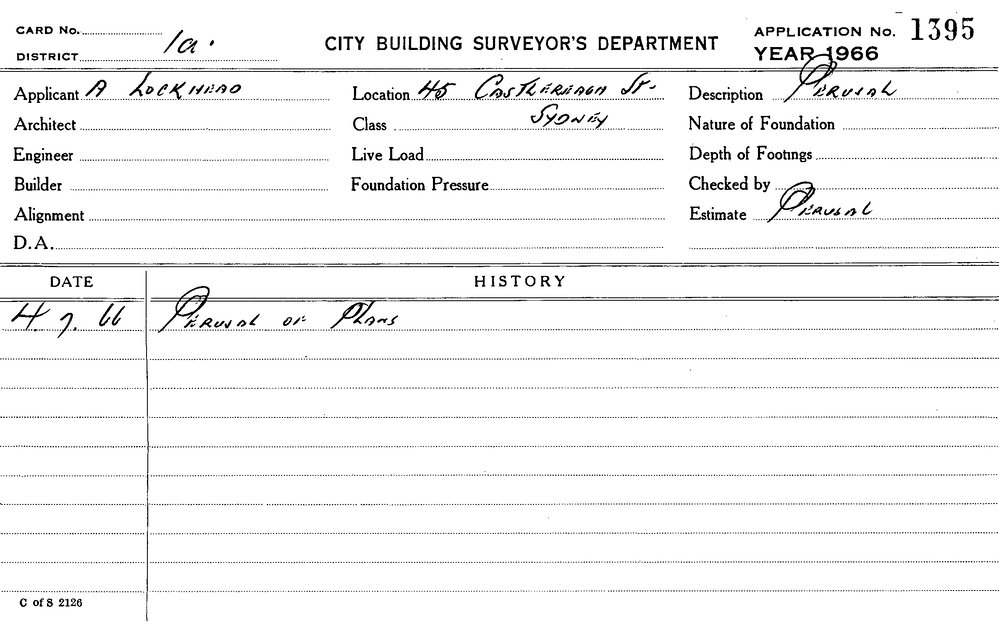 CARD No.
DISTRICT 1a.
CITY BUILDING SURVEYOR'S DEPARTMENT
APPLICATION No. 1395
YEAR 1966
Applicant A LOCKHEAD
Location 45 CASTLEREAGH St.
Description PERUSAL
Architect
Class SYDNEY
Nature of Foundation
Engineer
Live Load
Depth of Footings
Builder
Foundation Pressure
Checked by
Alignment
Estimate PERUSAL
D.A.
DATE HISTORY
4.7.66 PERUSAL OF PLANS
C of S 2126